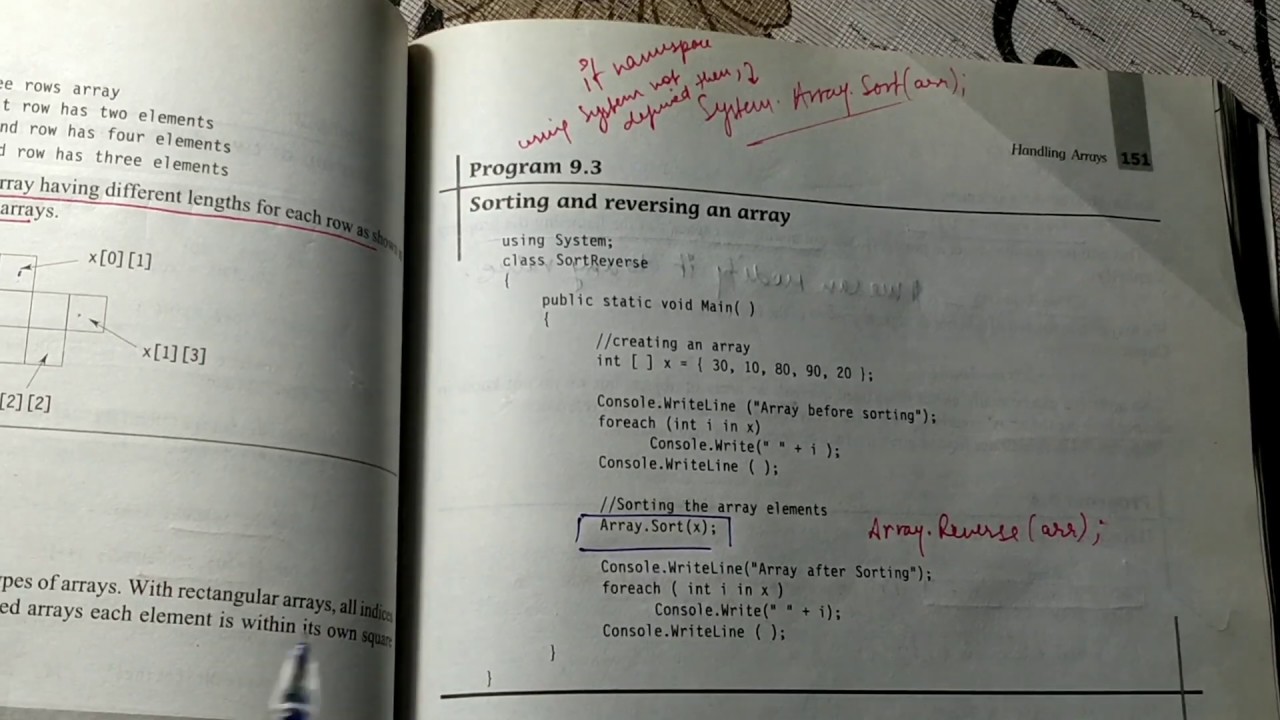 ee rows array
t row has two elements
nd row has four elements
d row has three elements
rray having different lengths for each row as shown
arrays.
x[0][1]
x[1][3]
[2][2]
ypes of arrays. With rectangular arrays, all indices
ed arrays each element is within its own square
If namespace
using System not
defined then,
System. Array.Sort(arr);
Handling Arrays 151
Program 9.3
Sorting and reversing an array
using System;
class SortReverse
{
public static void Main( )
{
//creating an array
int [ ] x = { 30, 10, 80, 90, 20 };
Console.WriteLine ("Array before sorting");
foreach (int i in x)
Console.Write(" " + i );
Console.WriteLine ( );
//Sorting the array elements
Array.Sort(x);
Array.Reverse(arr);
Console.WriteLine("Array after Sorting");
foreach ( int i in x )
Console.Write(" " + i);
Console.WriteLine ( );
}
}